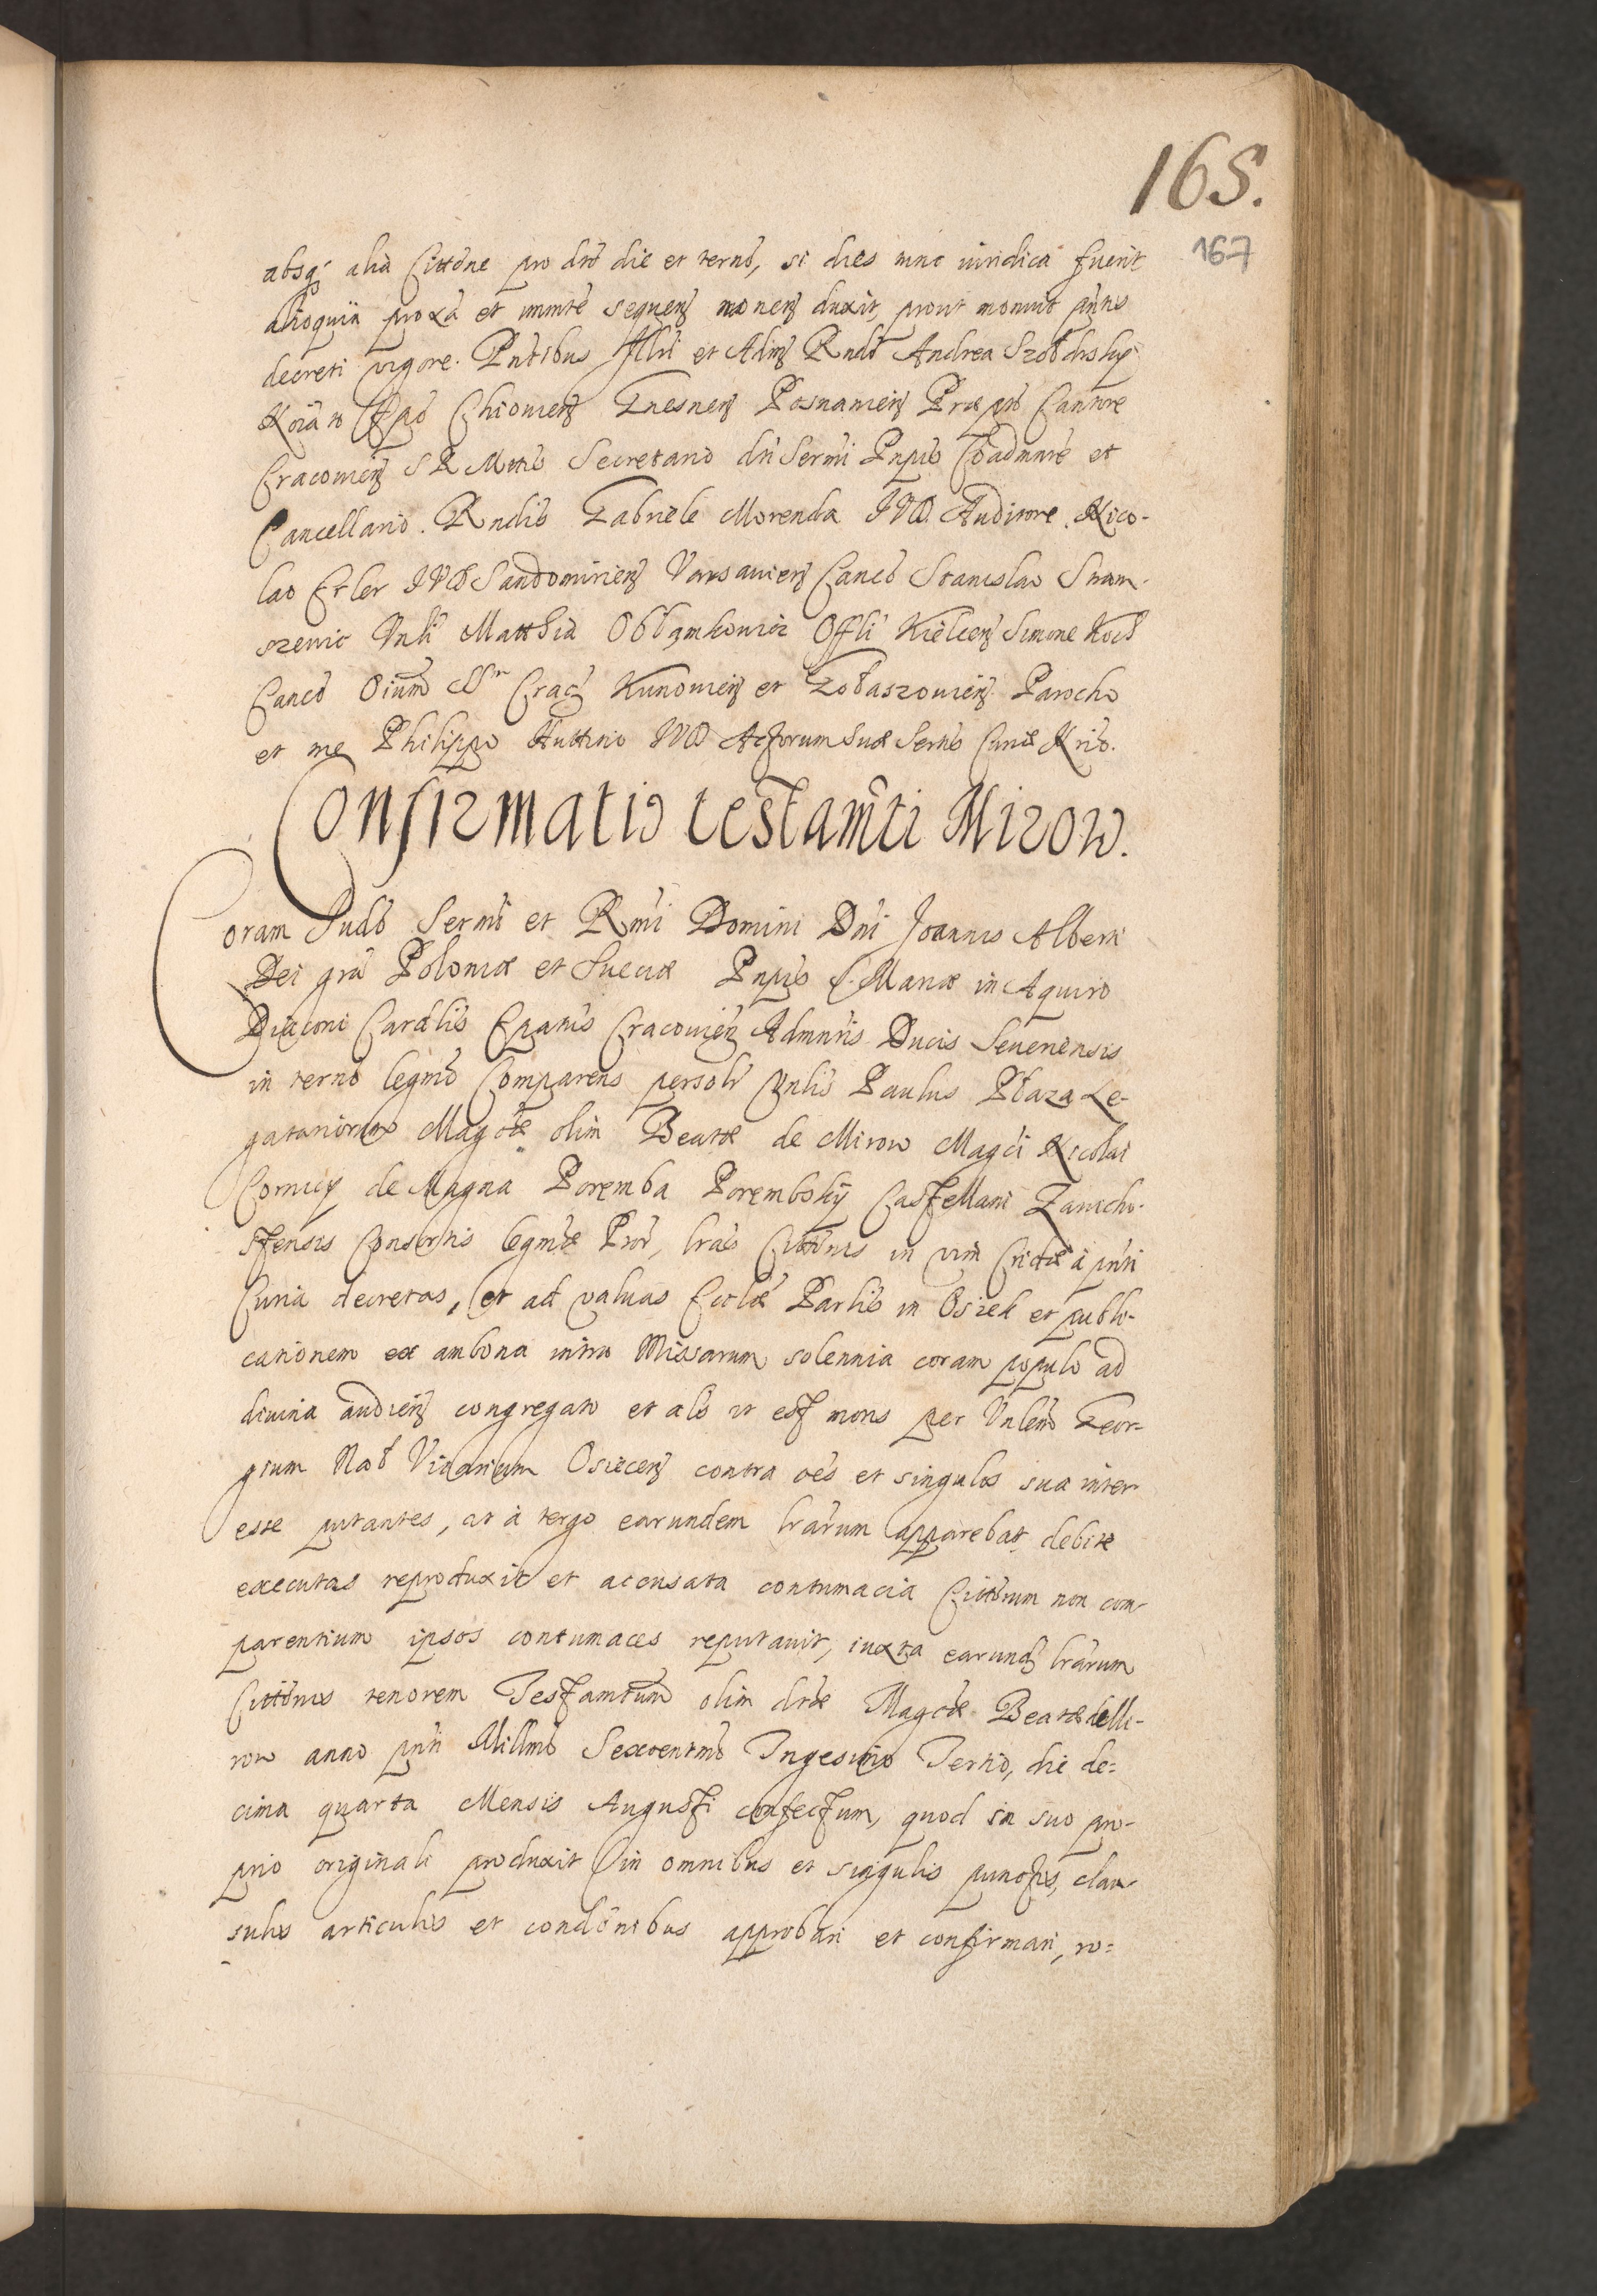 165.
167
absq; alia Cittōne pro dtō die et ternō, si dies tunc iuridica fuerit
alioquin proxa et immte sequen monen duxit, prout monuit pntis
decreti vigore. Pntibus Illri et Adm Rndo Andrea Szołdrsky
Noiato Epo Chiouien Gnesnen Posnanien Præpto Cantore
Cracouien S R Mttis Secretario dti Sermi Pnpis Coadmnre et
Cancellario. Rndis Gabriele Morenda IVD. Auditore. Nico-
lao Erler IVD Sandomirien Varsauien Canco Stanislao
Vnli Matthia Offli Kielcen Simone
Canco Oium SSrm Crac Kunouien et Parocho
et me Philippo IVD Actorum Suæ Sertis Curiæ Nrio.
Confirmatio testam̄ti Mirow.
Coram Iudō Sermi et Rmi Domini Dni Joannis Alberti
Dei gra Poloniæ et Sueciæ Pnpis S. Mariæ in Aquiro
Diaconi Cardlis Epatus Cracouien Admnris Ducis Seueriensis
in ternō legmō Comparens persolr Vnlis Paulus Płaza Le-
gatariorum Magcæ olim Beatæ de Mirow Magci Nicolai
Cornicy de Magna Poremba Porembsky Castellani Zawicho-
stensis Consortis legmæ Pror, lras Cittōnis in vim Cridæ à pnti
Curia decretas, et ad valuas Ecclæ Parlis in Osiek et publi-
cationem ex ambona intra Missarum solennia coram populo ad
diuina audien congregato et als ut est moris per Vnlem Geor-
gium Vicarium Osiecen contra oes et singulos sua inter
esse putantes, ut à tergo earundem lrarum apparebat debite
executas reproduxit et accusata contumacia Cittorum non com-
parentium ipsos contumaces reputauit, iuxta earund lrarum
Cittōnis tenorem Testamtum olim dctæ Magcæ Beatæ de Mi-
row anno pnti Millmo Sexcentmo Trigesimo Tertio, die de=
cima quarta Mensis Augusti confectum, quod in suo pro-
prio originali produxit in omnibus et singulis punctis, clau-
sulis articulis et condōnibus approbari et confirmari, ro=